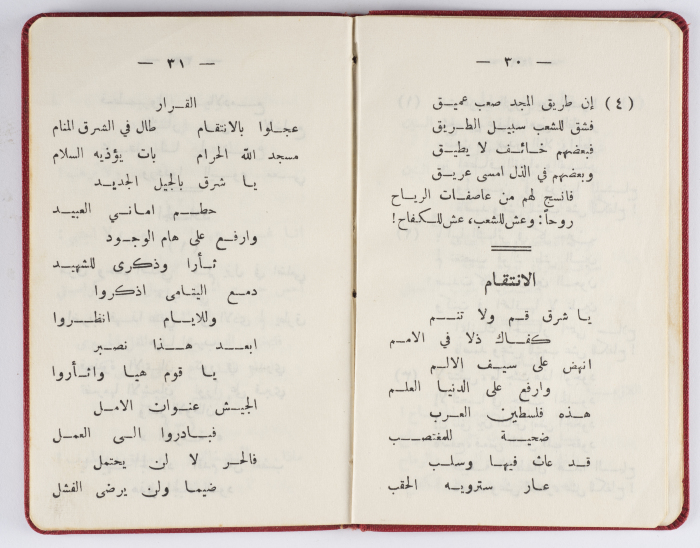 — ٣٠ —
(٤) إن طريق المجد صعب عميق
فشق للشعب سبيل الطريق
فبعضهم خائف لا يطيق
وبعضهم في الذل امسى عريق
فانسج لهم من عاصفات الرياح
روحاً: وعش للشعب، عش للكفاح!
الانتقام
يا شرق قم ولا تنم
كفاك ذلا في الامم
انهض على سيف الالم
وارفع على الدنيا العلم
هذه فلسطين العرب
ضحية للمغتصب
قد عاث فيها وسلب
عار سترويه الحقب
— ٣١ —
القرار
عجلوا بالانتقام طال في الشرق المنام
مسجد الله الحرام بات يؤذيه السلام
يا شرق بالجيل الجديد
حطم اماني العبيد
وارفع على هام الوجود
ثأرا وذكرى للشهيد
دمع اليتامى اذكروا
وللايام انظروا
ابعد هذا نصبر
يا قوم هيا واثأروا
الجيش عنوان الامل
فبادروا الى العمل
فالحر لا لن يحتمل
ضيما ولن يرضى الفشل